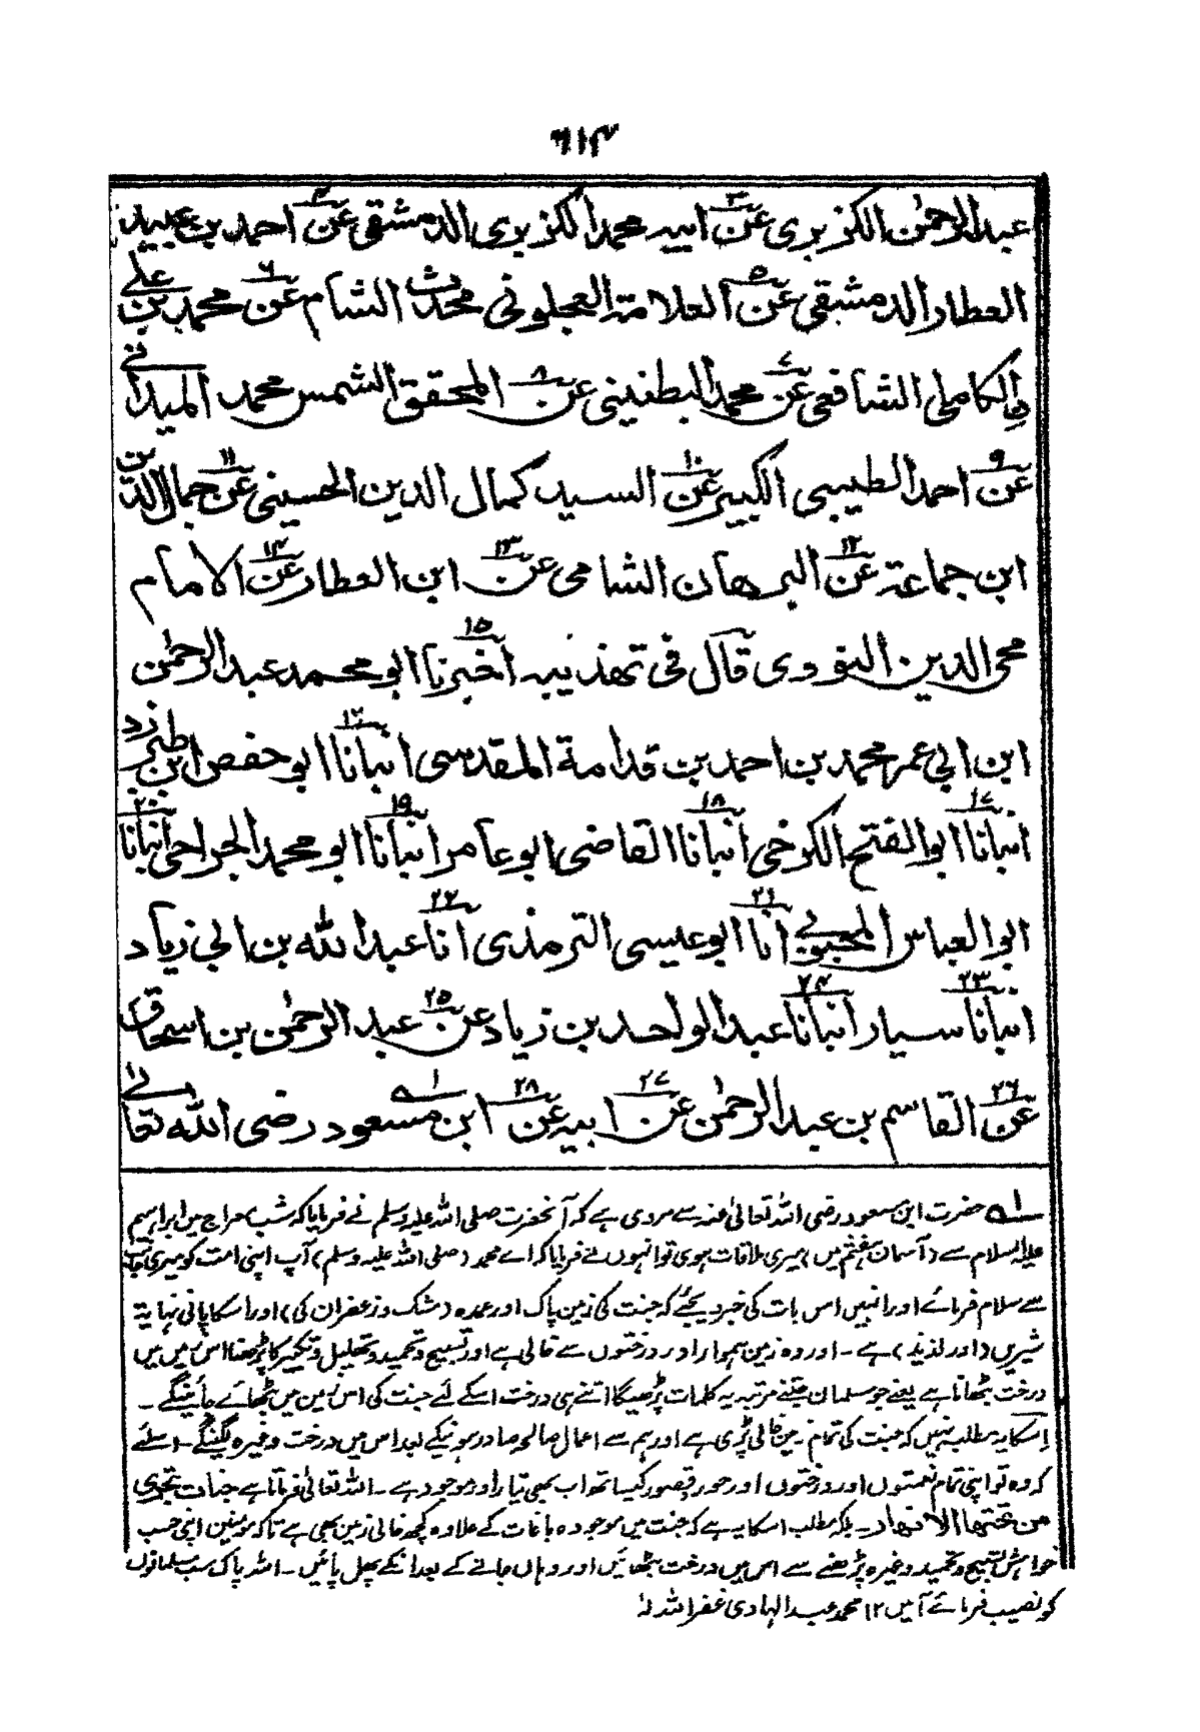 ٦١٣
عبدالرحمٰن الكزبرى عن٣ ابيه محمد الكزبرى الدمشقى عن٤ احمد بن عبيد
العطار الدمشقى عن٥ العلامة العجلونى محدث الشام عن٦ محمد بن على
الكاملى الشافعى عن٧ محمد البطنينى عن٨ المحقق الشمس محمد الميدانى
عن٩ احمد الطيبى الكبير عن١٠ السيد كمال الدين الحسينى عن١١ جمال الدين
ابن جماعة عن١٢ البرهان الشامى عن١٣ ابن العطار عن١٤ الامام
محى الدين النووى قال فى تهذيبه اخبرنا١٥ ابو محمد عبدالرحمٰن
ابن ابى عمر محمد بن احمد بن قدامة المقدسى انبانا١٦ ابو حفص ابن طبرزد
انبانا١٧ ابو الفتح الكرخى انبانا١٨ القاضى ابو عامر انبانا١٩ ابو محمد الجراحى انبانا٢٠
ابو العباس المحبوبى انا٢١ ابو عيسى الترمذى انا٢٢ عبدالله بن ابى زياد
انبانا٢٣ سيار انبانا٢٤ عبدالواحد بن زياد عن٢٥ عبدالرحمٰن بن اسحاق
عن٢٦ القاسم بن عبدالرحمٰن عن٢٧ ابيه عن٢٨ ابن مسعود١ـه رضى الله تعالى
١ـه حضرت ابن مسعود رضی اللہ تعالیٰ عنہ سے مروی ہے کہ آنحضرت صلی اللہ علیہ وسلم نے فرمایا کہ شب معراج میں ابراہیم
علیہ السلام سے (آسمان ہفتم میں) میری ملاقات ہوی تو انہوں نے فرمایا کہ اے محمد (صلی اللہ علیہ وسلم) آپ اپنی امت کو میری جانب
سے سلام فرمائے اور انہیں اس بات کی خبر دیجئے کہ جنت کی زمین پاک اور عمدہ (مشک و زعفران کی) اور اسکا پانی نہایة
شیریں (اور لذیذ) ہے ۔ اور وہ زمین ہموار اور درختوں سے خالی ہے اور تسبیح وتحمید وتہلیل وتکبیر کا پڑھنا اس زمین میں
درخت بٹھانا ہے یعنے جو مسلمان جتنے مرتبہ یہ کلمات پڑھیگا اتنے ہی درخت اسکے لئے جنت کی اس زمین میں بٹھائے جائینگے ۔
اسکا یہ مطلب نہیں کہ جنت کی تمام زمین خالی پڑی ہے اور ہم سے اعمال صالحہ صادر ہونیکے بعد اس میں درخت وغیرہ لگینگے ۔ اسلئے
کہ وہ تو اپنی تمام نعمتوں اور درختوں اور حور وقصور کیساتھ اب بھی تیار اور موجود ہے ۔ اللہ تعالیٰ فرماتا ہے جنات تجری
من تحتها الانهار ۔ بلکہ مطلب اسکا یہ ہے کہ جنت میں موجودہ باغات کے علاوہ کچھ خالی زمین بھی ہے تاکہ مومنین اپنی حسب
خواہش تسبیح وتحمید وغیرہ پڑھنے سے اس میں درخت بٹھائیں اور وہاں جانے کے بعد انکے پھل پائیں ۔ اللہ پاک سب مسلمانوں
کو نصیب فرمائے آمیں ١٢ محمد عبدالہادی غفر اللہ لہٗ